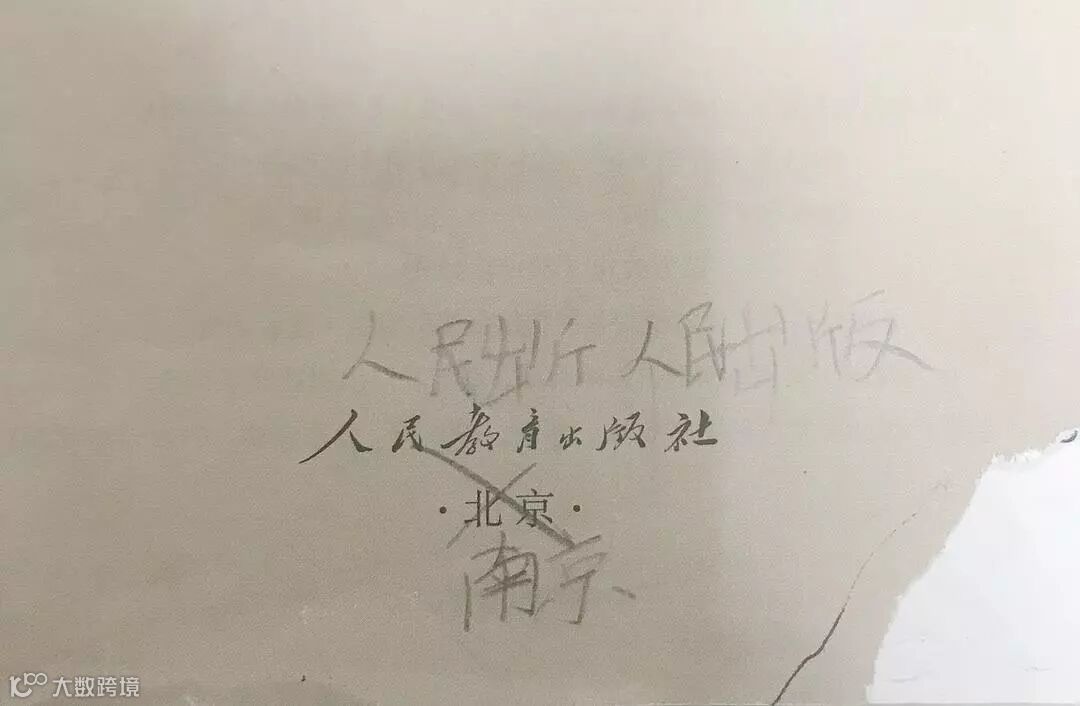 人民出 人民出版
人民教育出版社
·北京·
南京
大数跨境